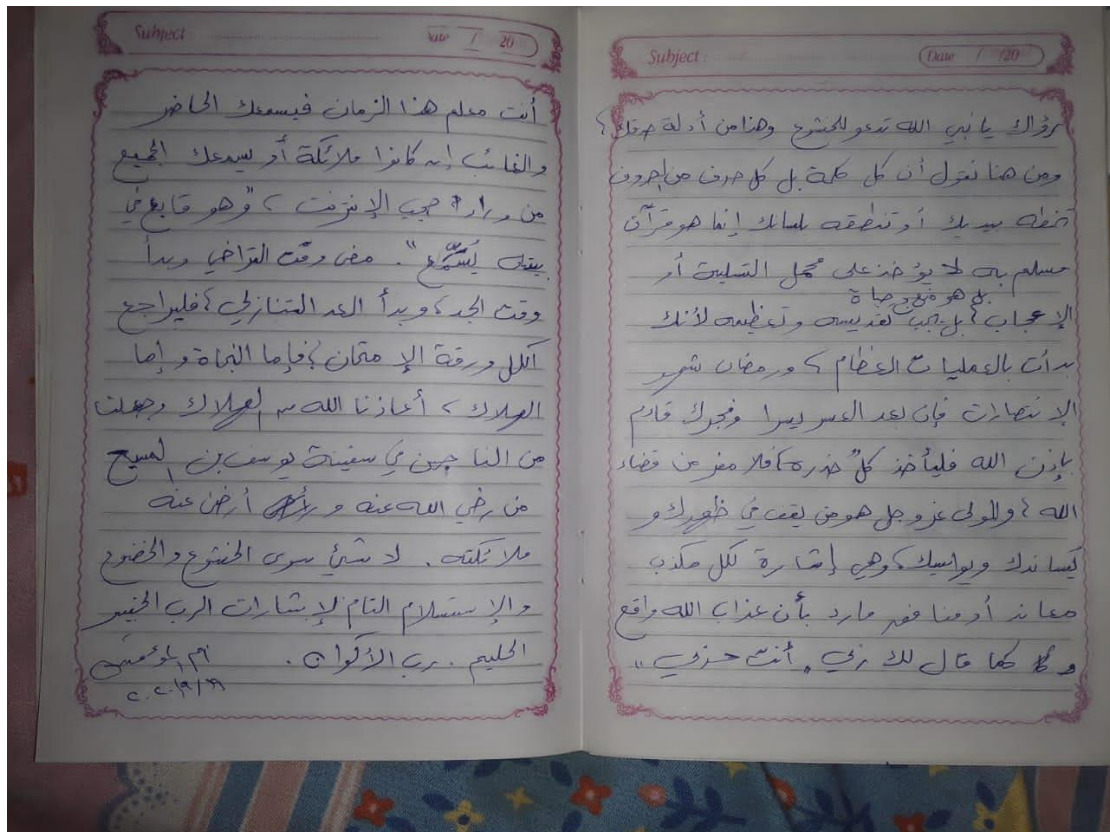 Subject:
Date / /20
رؤاك يا نبي الله تدعو للخشوع وهذا من أدلة صدقك،
ومن هنا نقول أن كل كلمة بل كل حرف من الحروف
تخطه بيديك أو تنطقه بلسانك إنما هو قرآن
مسلم به لا يؤخذ على محمل التسلية أو
بل هو منهج حياة
الإعجاب، بل يجب تقديسه وتعظيمه لأنك
بدأت بالعمليات العظام، ورمضان شهر
الإنتصارات فإن بعد العسر يسرا وفجرك قادم
بإذن الله فليأخذ كلٌ حذره، فلا مفر من قضاء
الله، والمولى عز وجل هو من يقف في ظهرك و
يساندك ويواسيك، وهي إشارة لكل مكذب
معاند أو منافق مارد بأن عذاب الله واقع
كما قال لك ربي "أنت حزبي"
Subject
Date / 20
أنت معلم هذا الزمان فيسمعك الحاضر
والغائب إن كانوا ملائكة أو يسمعك الجميع
من وراء حجب الإنترنت، "وهو قابع في
بيته يُسَمَّع". مضى وقت التراخي وبدأ
وقت الجد، وبدأ العد التنازلي، فليراجع
الكل ورقة الإمتحان، فإما النجاة وإما
الهلاك، أعاذنا الله من الهلاك وجعلنا
من الناجين في سفينة يوسف بن المسيح
من رضي الله عنه و أرض عنه
ملائكته. لا شيئ سوى الخشوع والخضوع
والإستسلام التام لإشارات الرب الخبير
الحليم. رب الأكوان.
أم المؤمنين